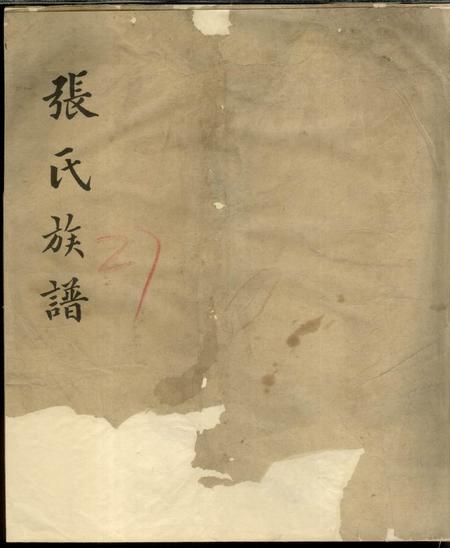 張氏族譜
27